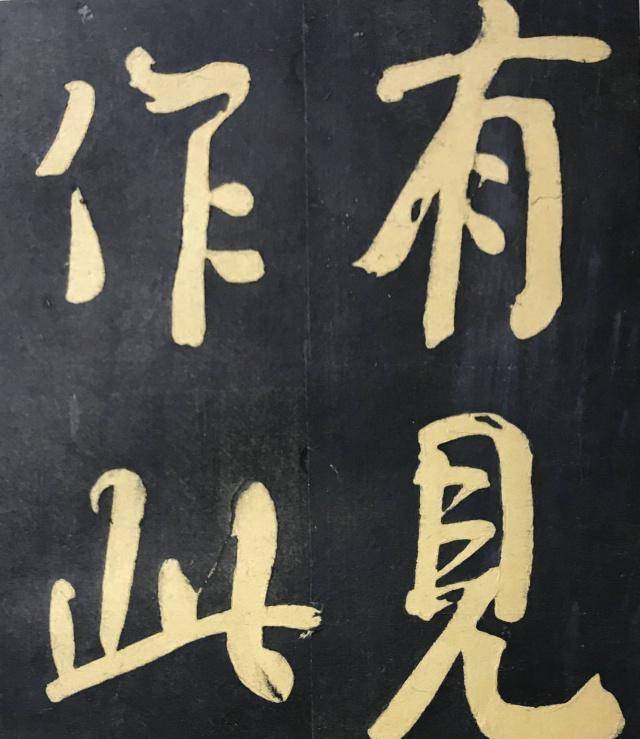 有見
作此